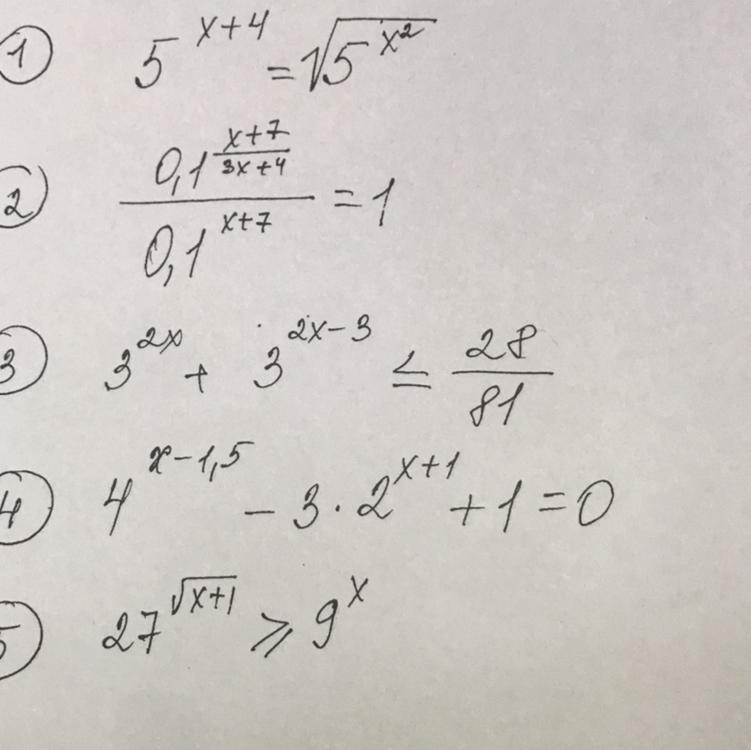 ① 5^(x+4) = √(5^(x²))
② 0,1^((x+7)/(3x+4)) / 0,1^(x+7) = 1
③ 3^(2x) + 3^(2x-3) ≤ 28/81
④ 4^(x-1,5) - 3 · 2^(x+1) + 1 = 0
⑤ 27^(√(x+1)) ≥ 9^x